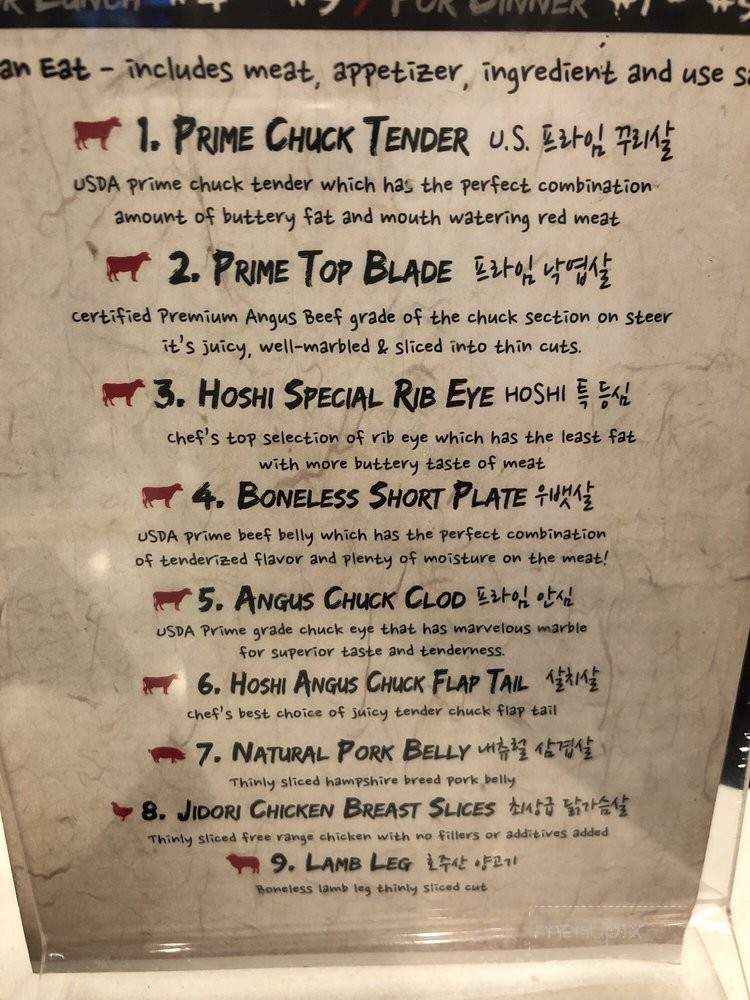 For Dinner
an Eat - includes meat, appetizer, ingredient and use
1. Prime Chuck Tender U.S. 프라임 꾸리살
USDA prime chuck tender which has the perfect combination
amount of buttery fat and mouth watering red meat
2. Prime Top Blade 프라임 낙엽살
certified Premium Angus Beef grade of the chuck section on steer
it's juicy, well-marbled & sliced into thin cuts.
3. Hoshi Special Rib Eye HOSHI 특 등심
chef's top selection of rib eye which has the least fat
with more buttery taste of meat
4. Boneless Short Plate 우뱃살
USDA prime beef belly which has the perfect combination
of tenderized flavor and plenty of moisture on the meat!
5. Angus Chuck Clod 프라임 안심
USDA Prime grade chuck eye that has marvelous marble
for superior taste and tenderness.
6. Hoshi Angus Chuck Flap Tail 살치살
chef's best choice of juicy tender chuck flap tail
7. Natural Pork Belly 내츄럴 삼겹살
Thinly sliced hampshire breed pork belly
8. Jidori Chicken Breast Slices 최상급 닭가슴살
Thinly sliced free range chicken with no fillers or additives added
9. Lamb Leg 호주산 양고기
Boneless lamb leg thinly sliced cut
menupix